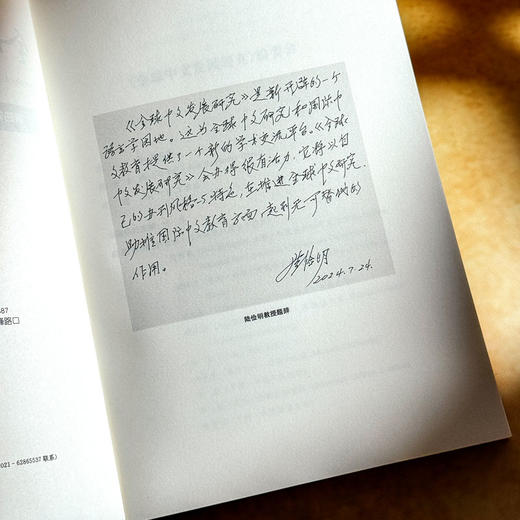 《全球中文发展研究》是新开辟的一个
语言学园地。这为全球中文研究和国际中
文教育提供了一个新的学术交流平台。《全球
中文发展研究》会办得很有活力，它将以自
己的办刊风格与特色，在推进全球中文研究、
助推国际中文教育方面，起到无可替代的
作用。
陆俭明
2024.7.24.
陆俭明教授题辞
587
峰路口
021-62865537 联系）